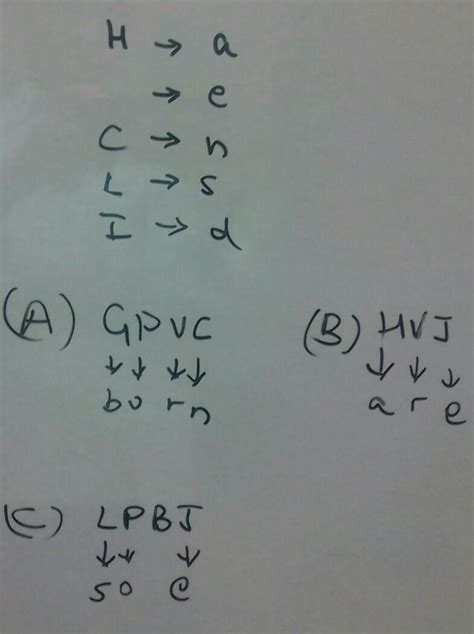 H → a
→ e
C → n
L → s
I → d
(A) GPVC
↓ ↓ ↓ ↓
b o r n
(B) HVJ
↓ ↓ ↓
a r e
(C) LPBJ
↓ ↓ ↓
s o e